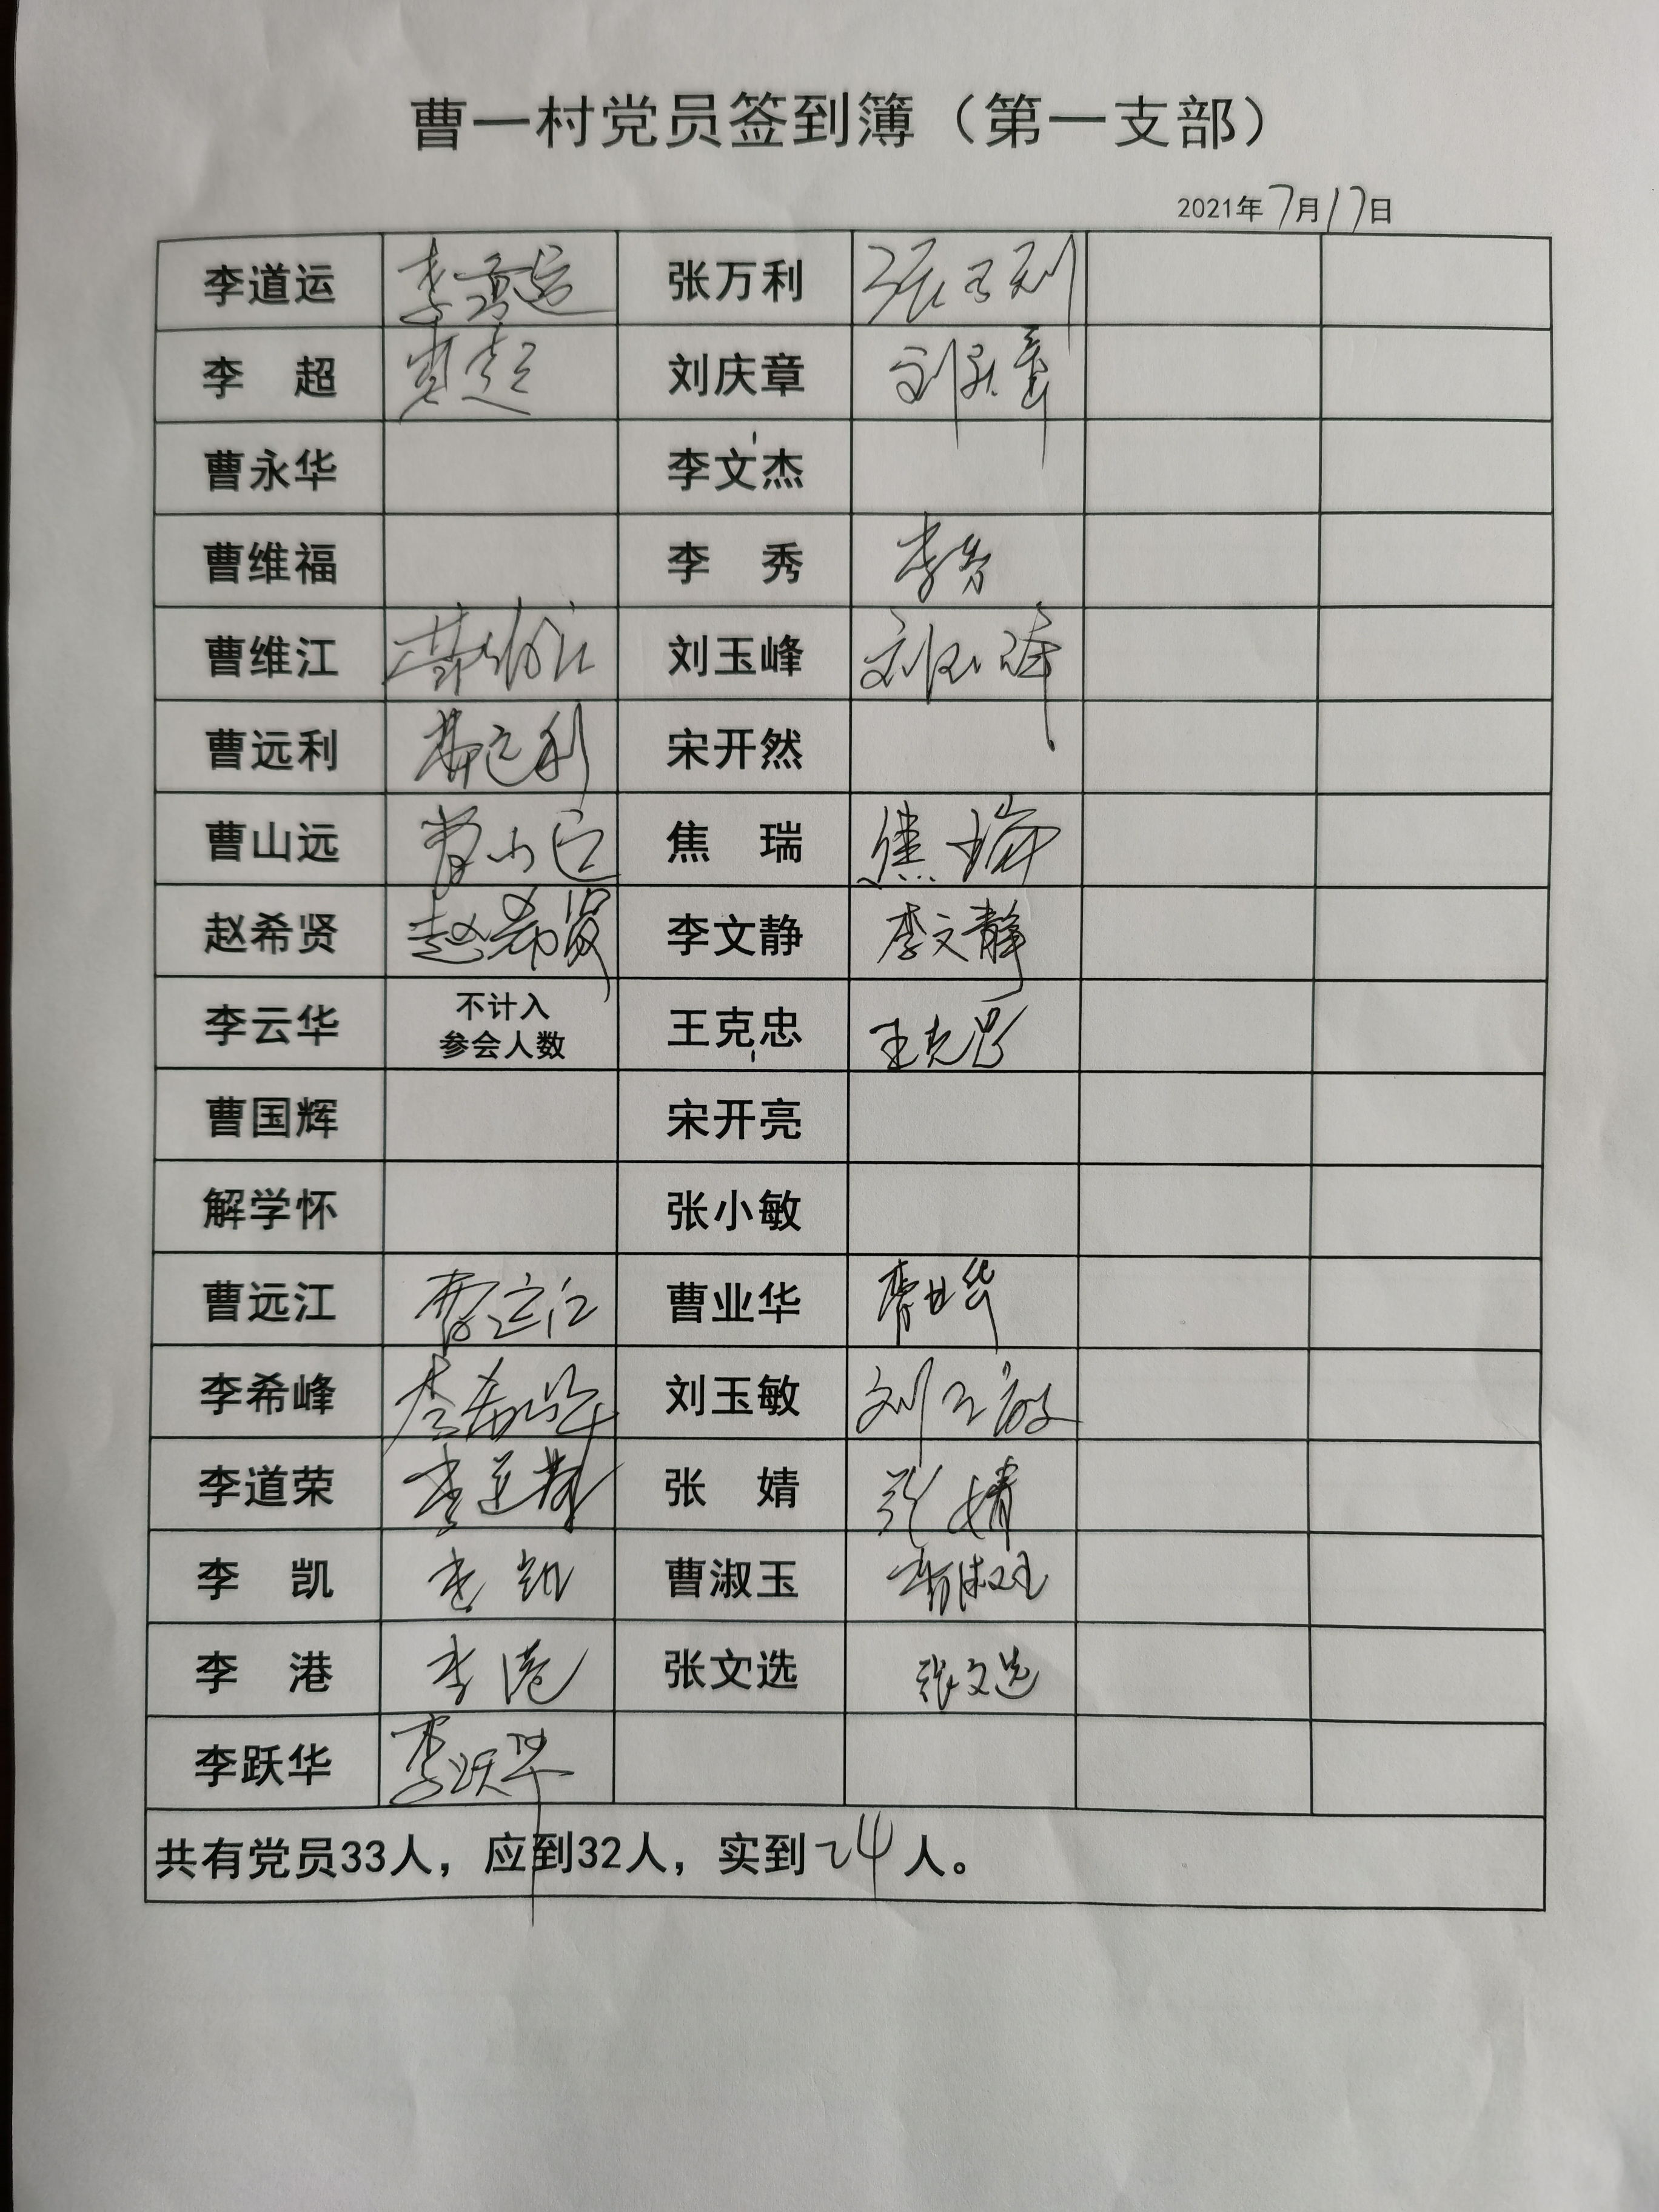 曹一村党员签到簿（第一支部）
2021年7月17日
李道运 李道运 张万利 张万利
李 超 李超 刘庆章 刘庆章
曹永华 李文杰
曹维福 李 秀 李秀
曹维江 曹维江 刘玉峰 刘玉峰
曹远利 曹远利 宋开然
曹山远 曹山远 焦 瑞 焦瑞
赵希贤 赵希贤 李文静 李文静
李云华 不计入 王克忠 王克忠
参会人数
曹国辉 宋开亮
解学怀 张小敏
曹远江 曹远江 曹业华 曹业华
李希峰 李希峰 刘玉敏 刘玉敏
李道荣 李道荣 张 婧 张婧
李 凯 李凯 曹淑玉 曹淑玉
李 港 李港 张文选 张文选
李跃华 李跃华
共有党员33人，应到32人，实到24人。